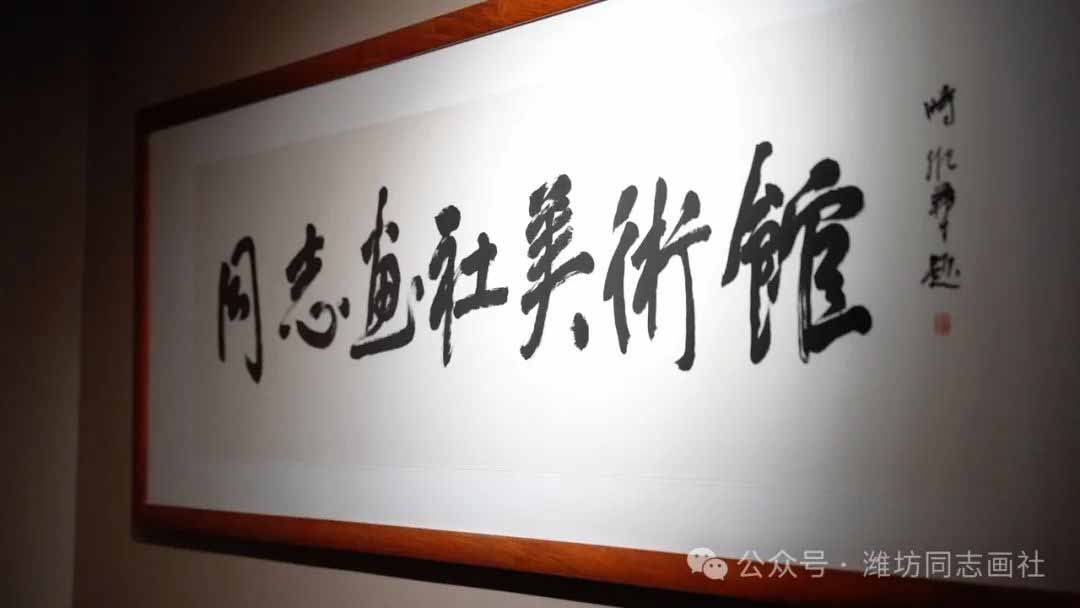 同志畫社美術館
時振華題
公众号·潍坊同志画社